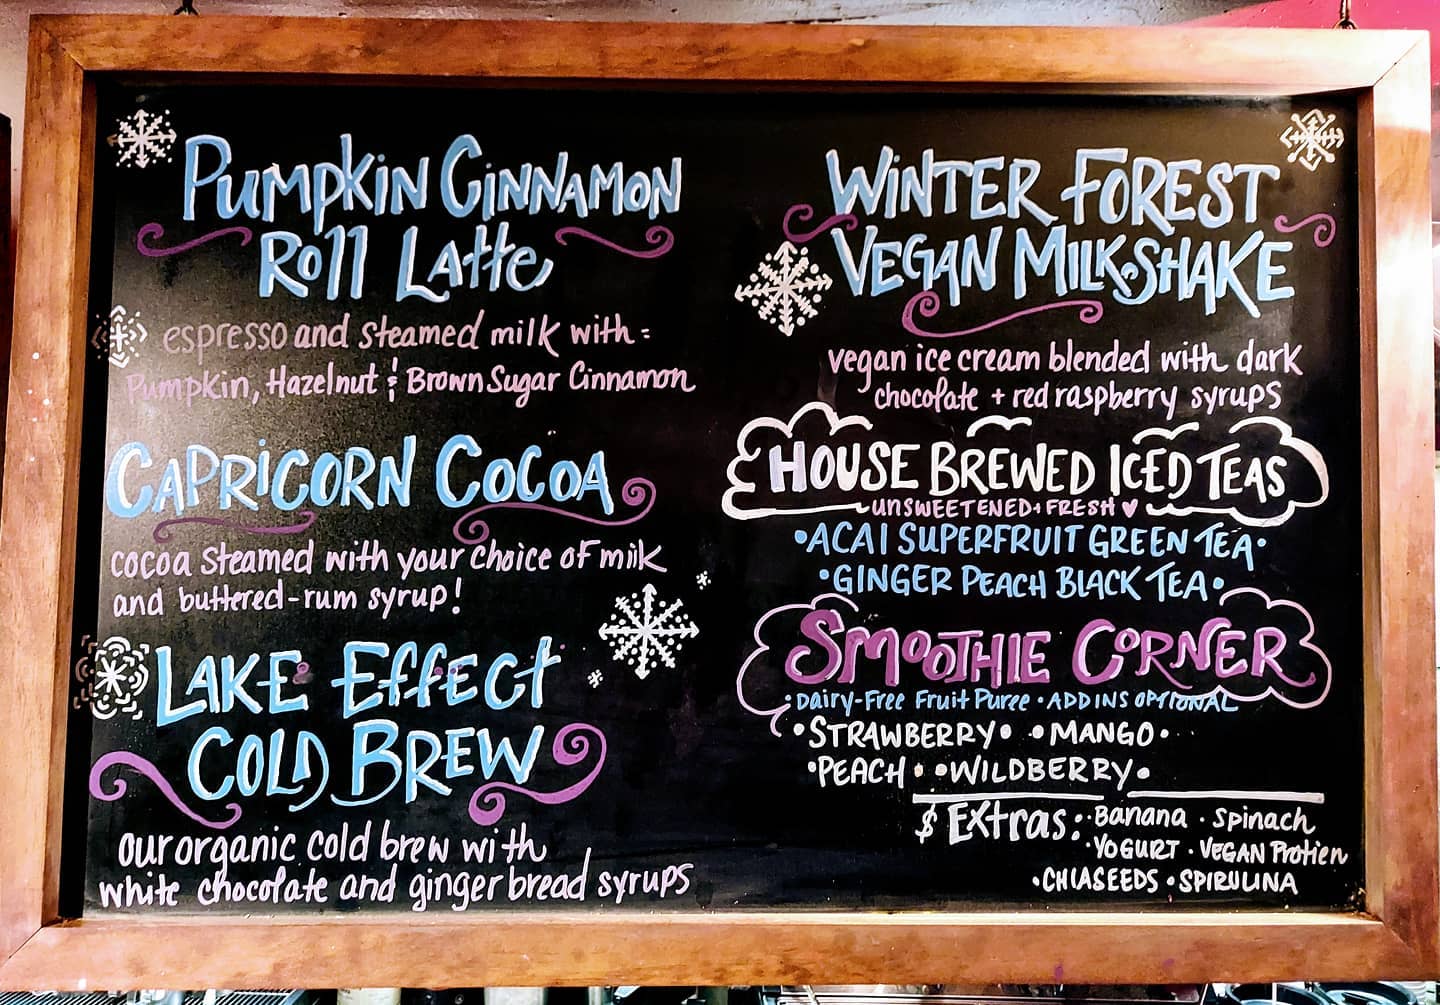 Pumpkin Cinnamon
Roll Latte
espresso and steamed milk with:
Pumpkin, Hazelnut & Brown Sugar Cinnamon
CAPRICORN COCOA
cocoa steamed with your choice of milk
and buttered-rum syrup!
LAKE Effect
COLD BREW
our organic cold brew with
white chocolate and gingerbread syrups
WINTER FOREST
VEGAN MILKSHAKE
vegan ice cream blended with dark
chocolate + red raspberry syrups
HOUSE BREWED ICED TEAS
UNSWEETENED + FRESH ♥
•ACAI SUPERFRUIT GREEN TEA•
•GINGER PEACH BLACK TEA•
SMOOTHIE CORNER
•Dairy-Free Fruit Puree • ADD INS OPTIONAL
•STRAWBERRY• •MANGO•
•PEACH• •WILDBERRY•
$ Extras: •Banana • Spinach
•YOGURT • VEGAN Protien
•CHIASEEDS •SPIRULINA